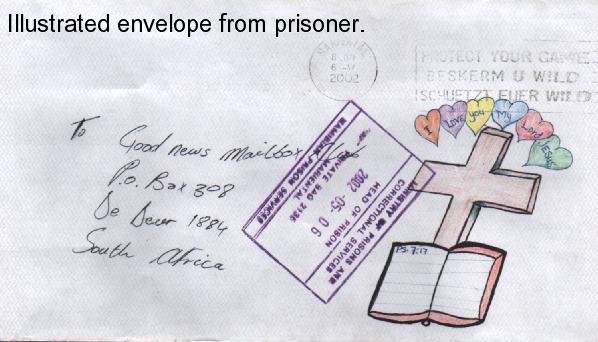 Illustrated envelope from prisoner.
MARIENTAL
2002
PROTECT YOUR GAME
BESKERM U WILD
SCHUETZT EUER WILD
I Love you My Lord JESUS
To
Good news Mailbox
P.O. Box 308
De Deur 1884
South Africa
NAMIBIAN PRISON SERVICES
MARIENTAL
PRIVATE BAG 2136
2002 -05- 06
HEAD OF PRISON
CORRECTIONAL SERVICES
MINISTRY OF PRISONS AND
PS. 7:17